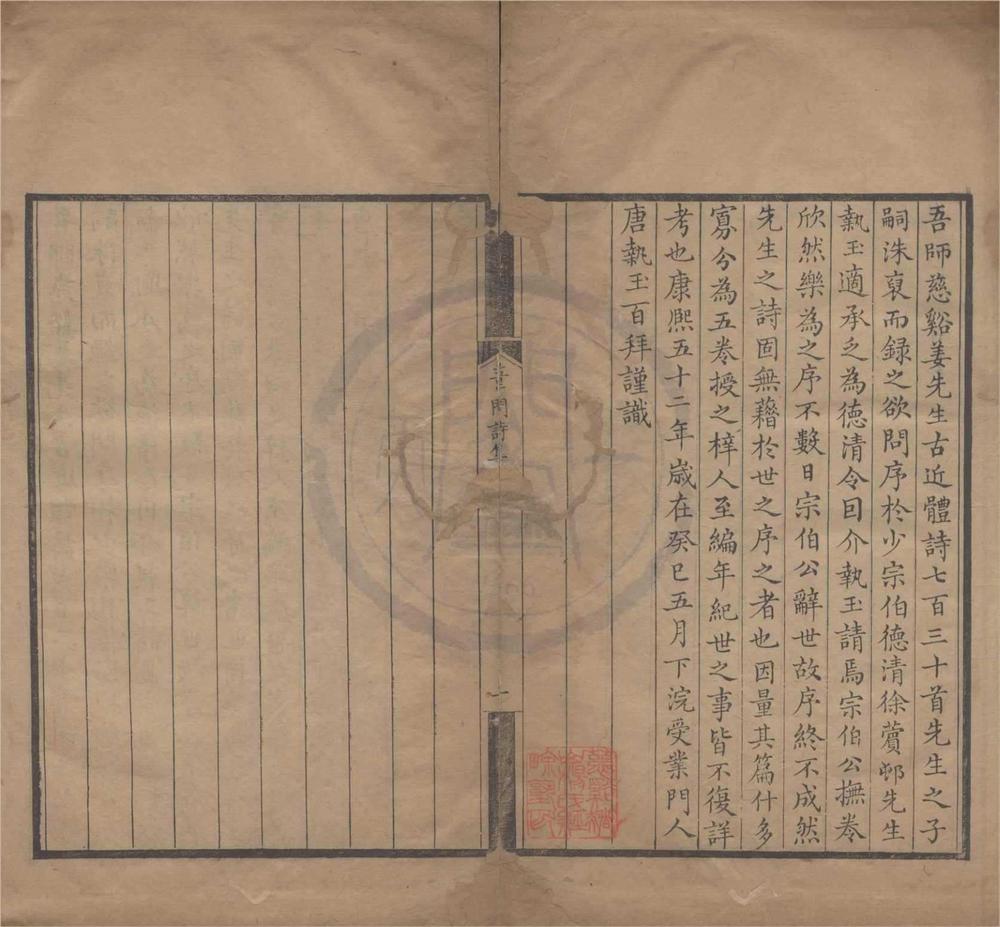 吾師慈谿姜先生古近體詩七百三十首先生之子
嗣洙裒而録之欲問序於少宗伯德清徐蘋邨先生
執玉適承乏為德清令囙介執玉請焉宗伯公撫卷
欣然樂為之序不數日宗伯公辭世故序終不成然
先生之詩固無藉於世之序之者也因量其篇什多
寡分為五卷授之梓人至編年紀世之事皆不復詳
考也康熙五十二年歲在癸巳五月下浣受業門人
唐執玉百拜謹識
葦間詩集
一